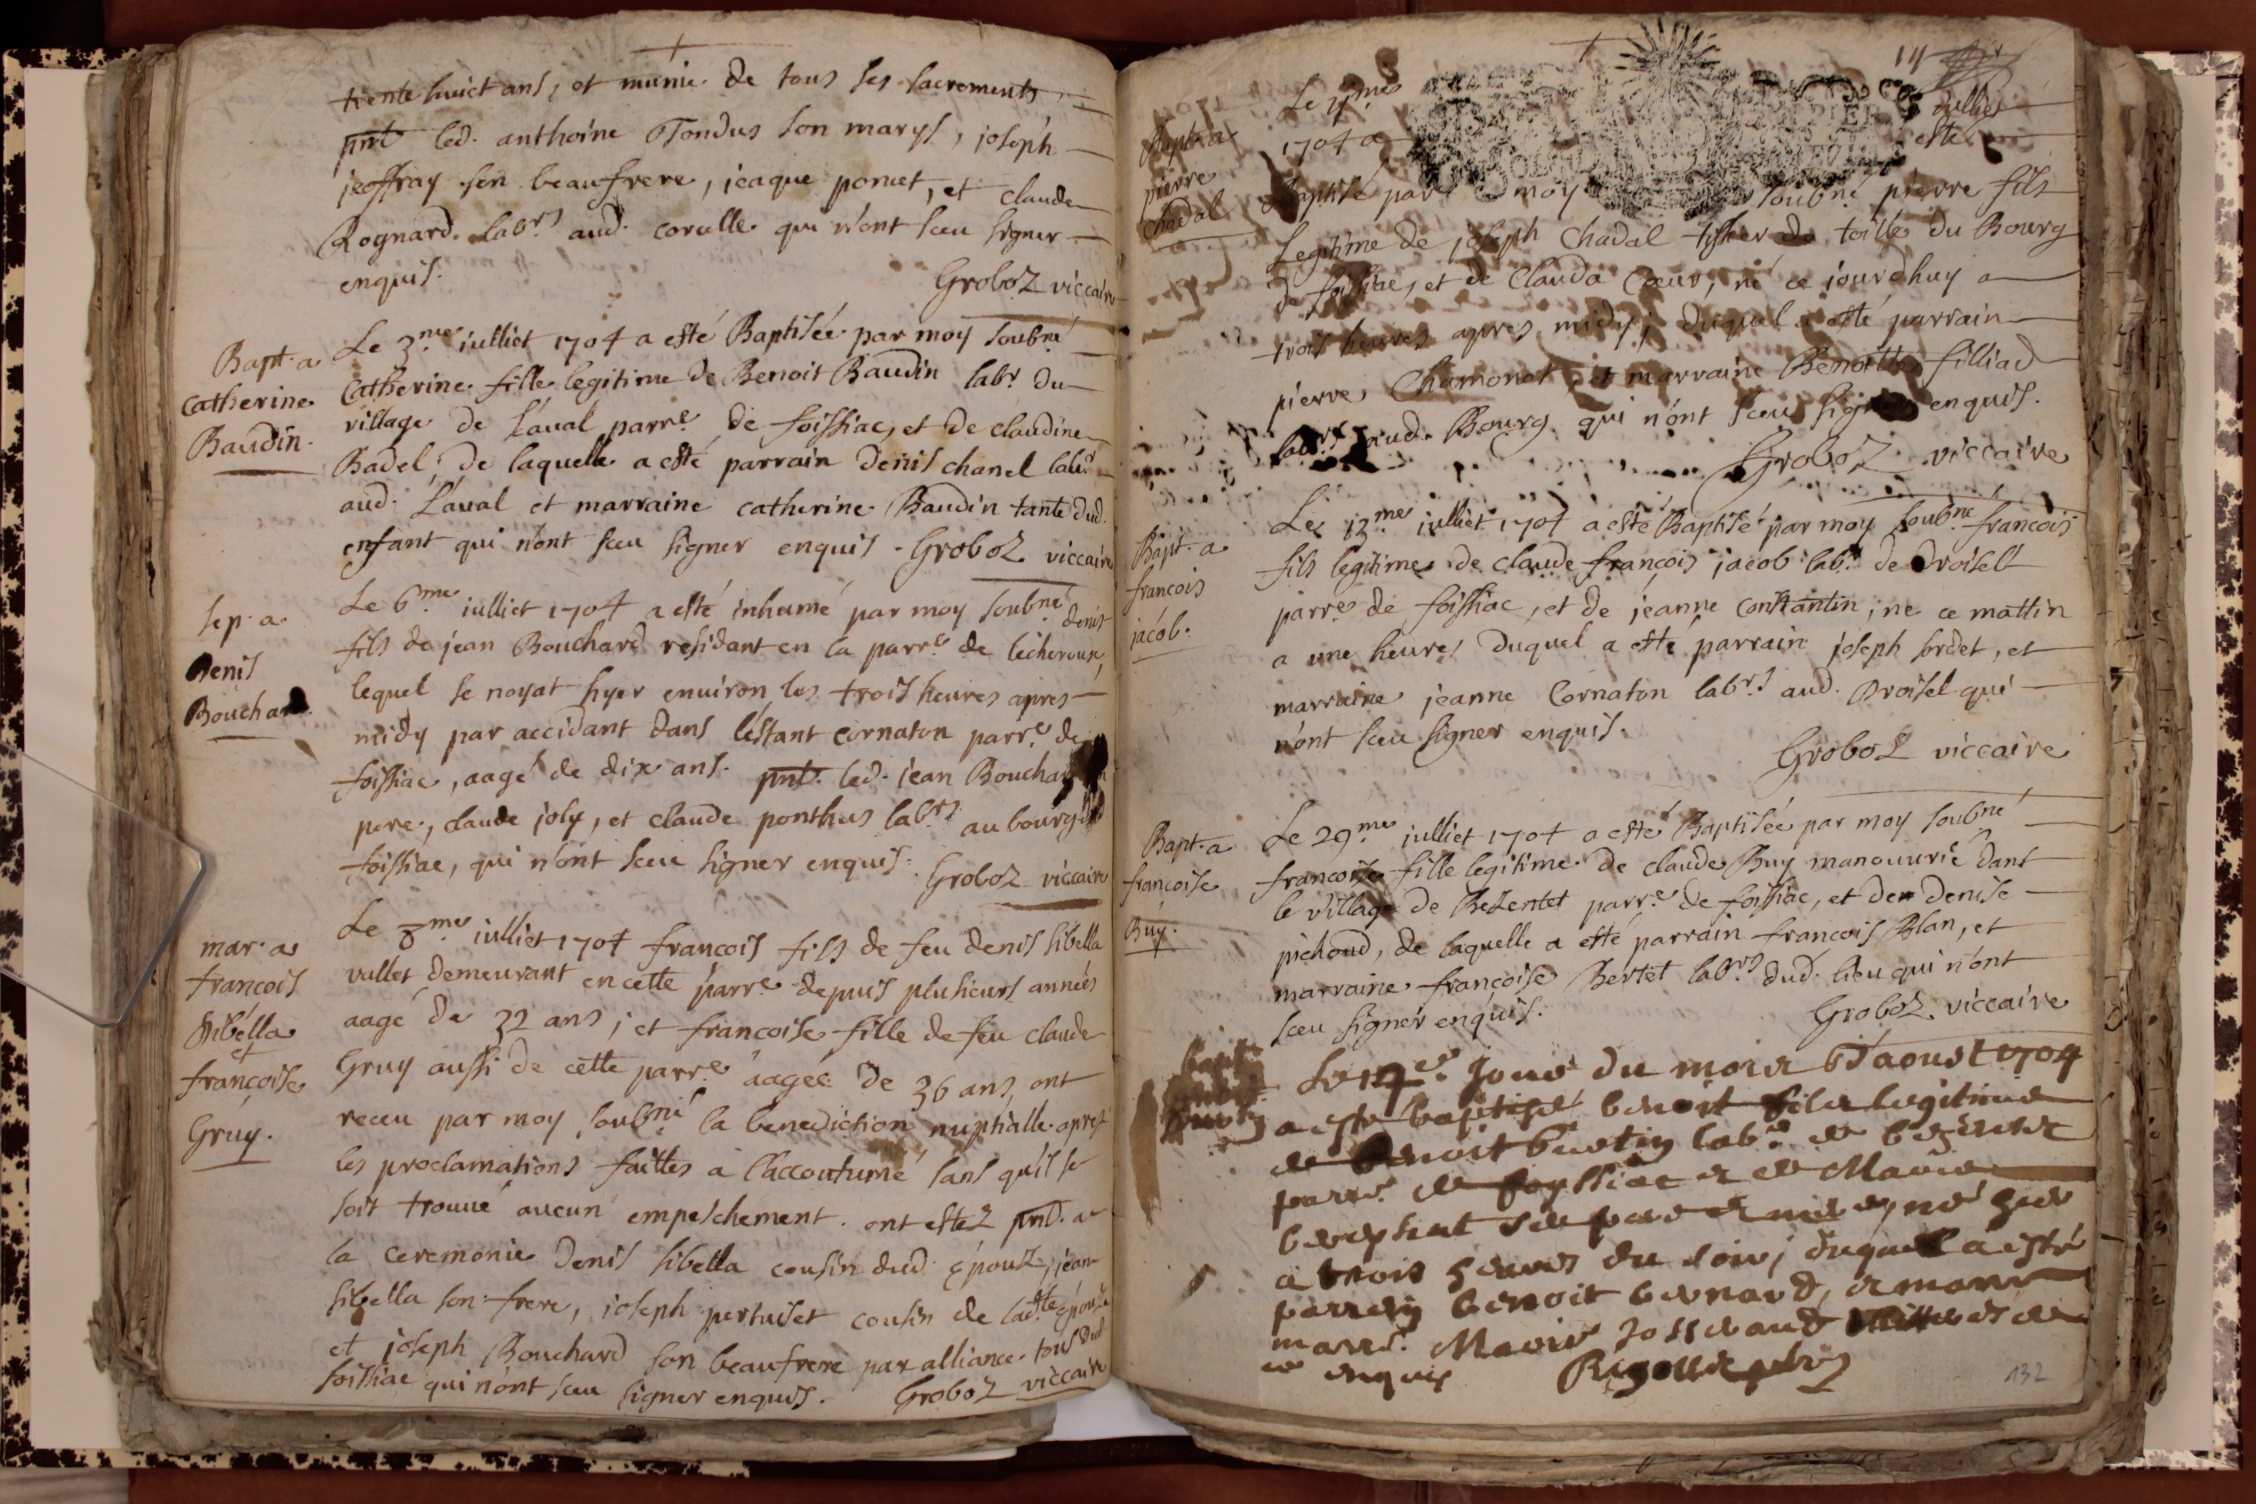 trente huict ans, et munie de tous ses sacrements
pnt led. anthoine Tondus son marys, joseph
jeoffray son beaufrere, jeaque poncet, et claude
Rognard labrs aud. corcelle qui n'ont sceu signer
enquis. Groboz viccaire
Bapt. a
catherine
Baudin.
Le 3.me iulliet 1704 a esté Baptisée par moy soubné
Catherine fille legitime de Benoit Baudin labr du
village de Laval parre de foissiac, et de claudine
Badel, de laquelle a esté parrain denis chanel labr
aud. Laval et marraine catherine Baudin tante dud.
enfant qui n'ont sceu signer enquis. Groboz viccaire
sep. a
Denis
Bouchard.
Le 6.me iulliet 1704 a esté inhumé par moy soubné denis
fils de jean Bouchard residant en la parre de lescheroux,
lequel se noyat hyer environ les trois heures apres
midy par accidant dans l'estant cornaton parre de
foissiac, aagé de dix ans. pnt. led. jean Bouchard son
pere, claude joly, et claude ponthus labrs au bourg de
foissiac, qui n'ont sceu signer enquis. Groboz viccaire
mar. a
francois
Sibella
et
francoise
Gruy.
Le 8.me iulliet 1704 francois fils de feu denis sibella
vallet demeurant en cette parre depuis plusieurs années
aagé de 32 ans, et francoise fille de feu claude
Gruy aussi de cette parre aagée de 36 ans, ont
receu par moy soubné la benediction nuptialle apres
les proclamations faittes a l'accoutumé sans qu'il se
soit trouué aucun empeschement. ont estez pnt. a
la ceremonie Denis sibella cousin dud. epoux, jean
sibella son frere, joseph pertuiset cousin de ladte epouse
et joseph Bouchard son beaufrere par alliance tous dud.
foissiac qui n'ont sceu signer enquis. Groboz viccaire
Bapt. a
pierre
Chadal
Le me iulliet
1704 a esté
Baptisé par moy soubné pierre fils
Legitime de joseph Chadal tissier de toille du Bourg
de foissiac, et de Clauda Coeur, né ce jourdhuy a
trois heures apres midy, duquel a esté parrain
pierre Chamonat, et marraine Benoitte filliad
labrs aud. Bourg qui n'ont sceu signer enquis.
Groboz viccaire
Bapt. a
francois
jacob.
Le 13.me iulliet 1704 a esté Baptisé par moy soubné francois
fils legitime de claude françois jacob labr de Droisell
parre de foissiac, et de jeanne constantin, né ce mattin
a une heure, duquel a esté parrain joseph sordet, et
marraine jeanne Cornaton labrs aud. Droisel qui
n'ont sceu signer enquis.
Groboz viccaire
Bapt. a
francoise
Buy.
Le 29.me iulliet 1704 a esté Baptisée par moy soubné
francoise fille legitime de claude Buy manouurié dans
le village de Bezentet parre de foissiac, et de Denise
pichoud, de laquelle a esté parrain francois Blan, et
marraine françoise Bertet labrs dud. lieu qui n'ont
sceu signer enquis. Groboz viccaire
bapt
Le jour du mois D'aoust 1704
a esté baptisé benoit fils legitime
de Benoit labr de
parre de foyssiac et de Marie
ses pere et mere, né hier
a trois heures du soir, duquel a esté
parrein benoit bernard, et marr
Marie Josserand
enquis
132